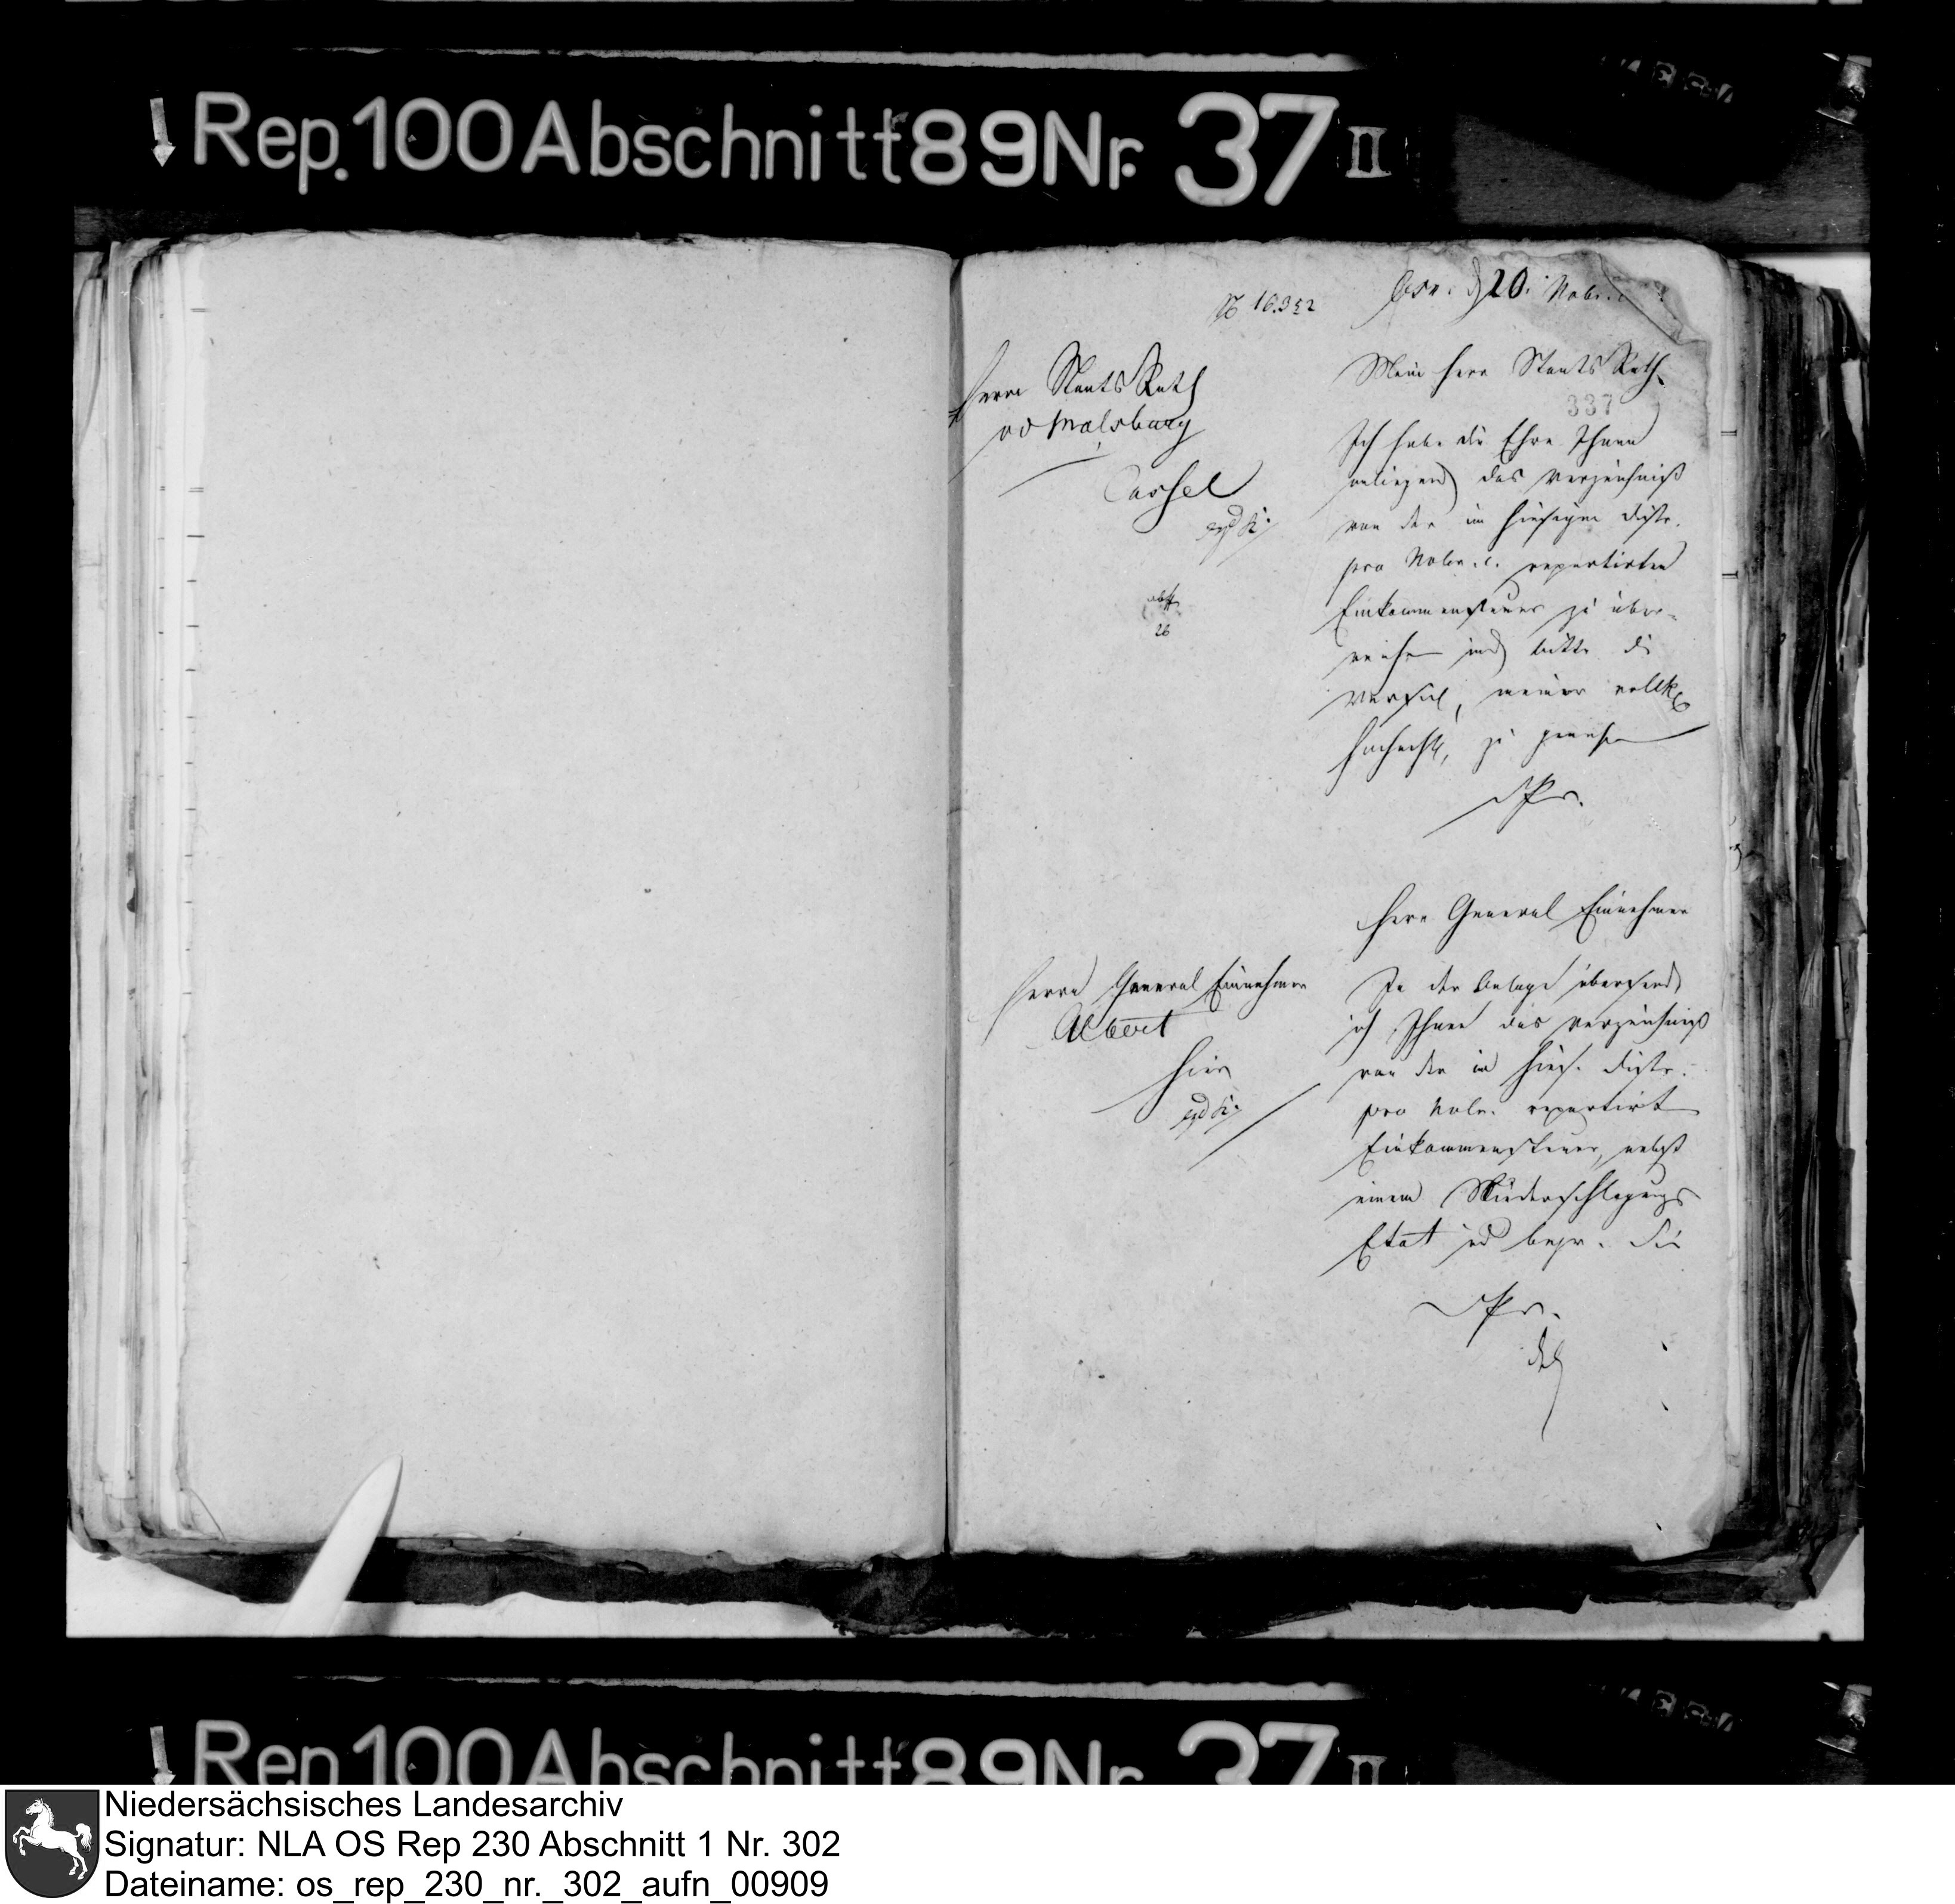 Rep. 100 Abschnitt 89 Nr. 37 II
№ 16.352
Osn. d 20. Nobr.
Herrn Staats Rath
v d Malsburg
Cassel
abg
26
Mein Herr Staats Rath
337
Ich habe die Ehre Ihnen
anliegend das Verzeichniß
von der im hiesigen Distr.
pro Nobr. c. repartirten
Einkommensteuer zu über-
reichen und bitte die
Versich, meiner vollk
Hochacht, zu genehm
D Pr.
Herrn General Einnehmer
Albert
hier
Herr General Einnehmer
In der Anlage übersende
ich Ihnen das Verzeichniß
von der in hies. Distr.
pro Nobr. repartirt
Einkommensteuer, nebst
einem Niederschlagungs
Etat und begr. Sie
D Pr.
Rep. 100 Abschnitt 89 Nr. 37 II
Niedersächsisches Landesarchiv
Signatur: NLA OS Rep 230 Abschnitt 1 Nr. 302
Dateiname: os_rep_230_nr._302_aufn_00909